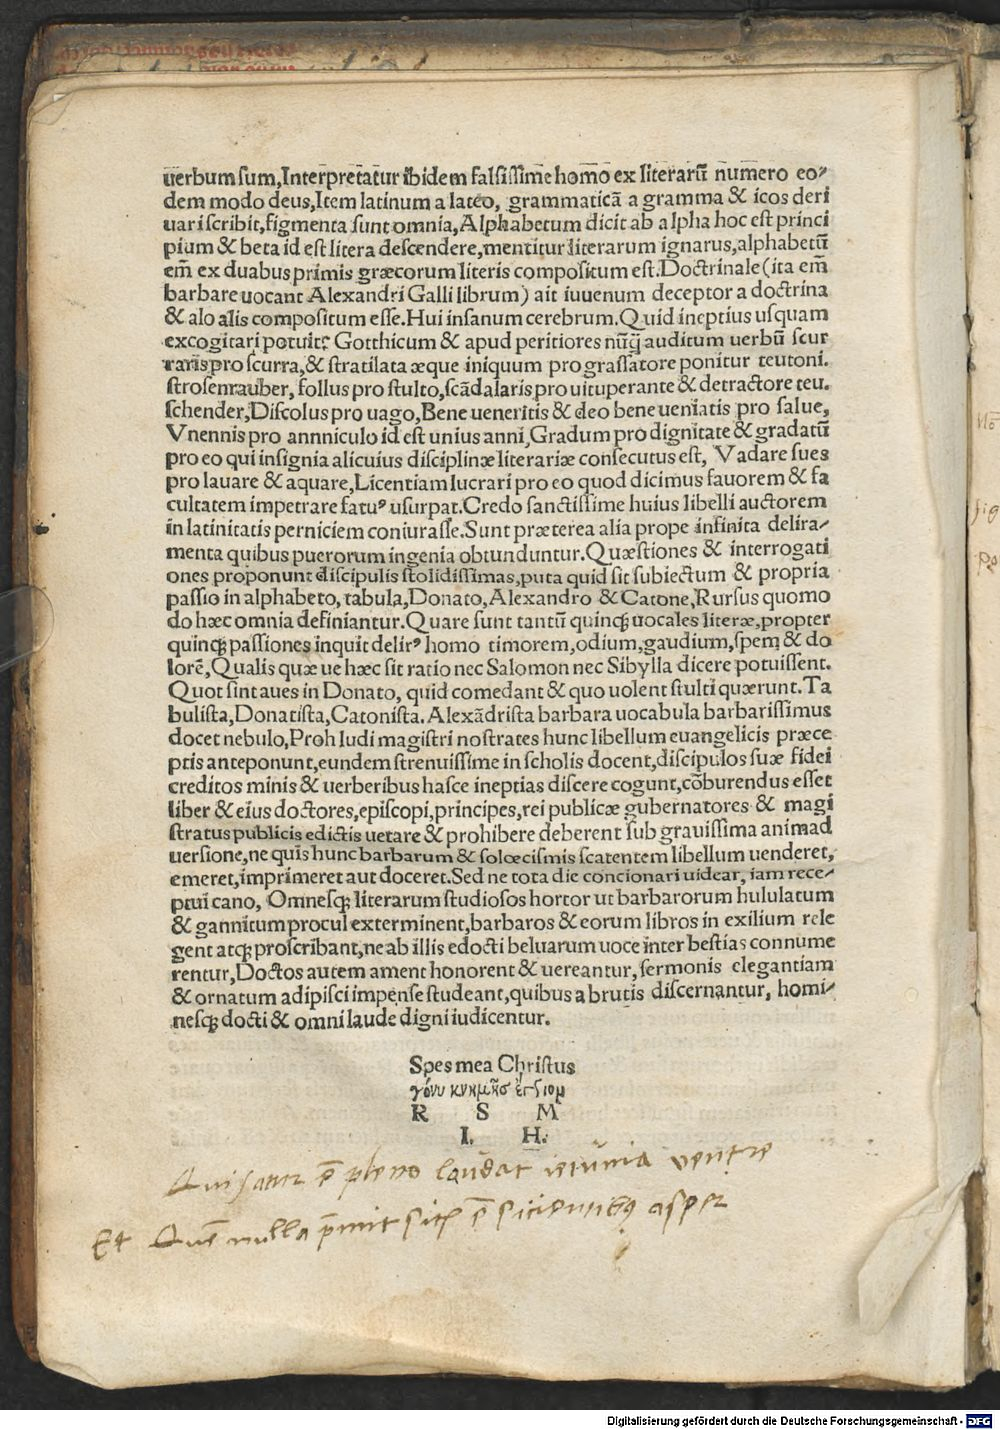 uerbum sum,Interpretatur ibidem falsissime homo ex literarū numero eo-
dem modo deus,Item latinum a lateo, grammaticā a gramma & icos deri
uari scribit,figmenta sunt omnia,Alphabetum dicit ab alpha hoc est princi
pium & beta id est litera descendere,mentitur literarum ignarus,alphabetū
em̄ ex duabus primis græcorum literis compositum est.Doctrinale(ita em̄
barbare uocant Alexandri Galli librum) ait iuuenum deceptor a doctrina
& alo alis compositum esse.Hui insanum cerebrum.Quid ineptius usquam
excogitari potuit? Gotthicum & apud peritiores nūꝗ̄ auditum uerbū scur
raris pro scurra,& stratilata æque iniquum pro grassatore ponitur teutoni.
strosenrauber, follus pro stulto,scādalaris pro uituperante & detractore teu.
schender,Discolus pro uago,Bene ueneritis & deo bene ueniatis pro salue,
Vnennis pro annniculo id est unius anni,Gradum pro dignitate & gradatū
pro eo qui insignia alicuius disciplinæ literariæ consecutus est, Vadare sues
pro lauare & aquare,Licentiam lucrari pro eo quod dicimus fauorem & fa
cultatem impetrare fatuꝰ usurpat.Credo sanctissime huius libelli auctorem
in latinitatis perniciem coniurasse.Sunt præterea alia prope infinita delira-
menta quibus puerorum ingenia obtunduntur.Quæstiones & interrogati
ones proponunt discipulis stolidissimas,puta quid sit subiectum & propria
passio in alphabeto,tabula,Donato,Alexandro & Catone,Rursus quomo
do hæc omnia definiantur.Quare sunt tantū quinqꝫ uocales literæ,propter
quinqꝫ passiones inquit delirꝰ homo timorem,odium,gaudium,spem & do
lorē,Qualis quæ ue hæc sit ratio nec Salomon nec Sibylla dicere potuissent.
Quot sint aues in Donato, quid comedant & quo uolent stulti quærunt.Ta
bulista,Donatista,Catonista.Alexādrista barbara uocabula barbarissimus
docet nebulo,Proh ludi magistri nostrates hunc libellum euangelicis præce
ptis anteponunt,eundem strenuissime in scholis docent,discipulos suæ fidei
creditos minis & uerberibus hasce ineptias discere cogunt,cōburendus esset
liber & eius doctores,episcopi,principes,rei publicæ gubernatores & magi
stratus publicis edictis uetare & prohibere deberent sub grauissima animad
uersione,ne quis hunc barbarum & solœcismis scatentem libellum uenderet,
emeret,imprimeret aut doceret.Sed ne tota die concionari uidear, iam rece-
ptui cano, Omnesqꝫ literarum studiosos hortor ut barbarorum hululatum
& gannitum procul exterminent,barbaros & eorum libros in exilium rele
gent atqꝫ proscribant,ne ab illis edocti beluarum uoce inter bestias connume
rentur,Doctos autem ament honorent & uereantur, sermonis elegantiam
& ornatum adipisci impense studeant,quibus a brutis discernantur, homi-
nesqꝫ docti & omni laude digni iudicentur.
Spes mea Christus
γόνυ κνημῆσ ἔγγιομ
R S M
I. H.
Qui satur ē pleno laudat ieiunia ventre
Et Quē nulla p̄mit sitis ē sitientibꝰ asper
Digitalisierung gefördert durch die Deutsche Forschungsgemeinschaft - DFG